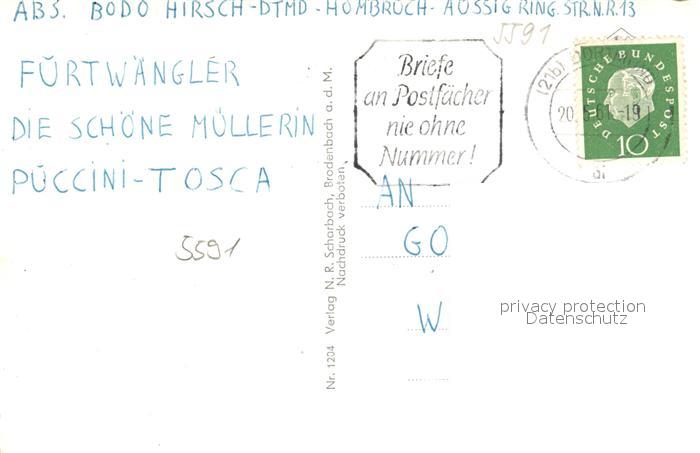 ABS. BODO HIRSCH-DTMD-HOMBRUCH-AUSSIG RING.STR.N.R.13
FÜRTWÄNGLER
DIE SCHÖNE MÜLLERIN
PÜCCINI-TOSCA
5591
Nr. 1204 Verlag N. R. Scharbach, Brodenbach a. d. M.
Nachdruck verboten
5591
Briefe
an Postfächer
nie ohne
Nummer!
(21b)
20.
-19
DEUTSCHE BUNDESPOST
10
AN
GO
W
privacy protection
Datenschutz